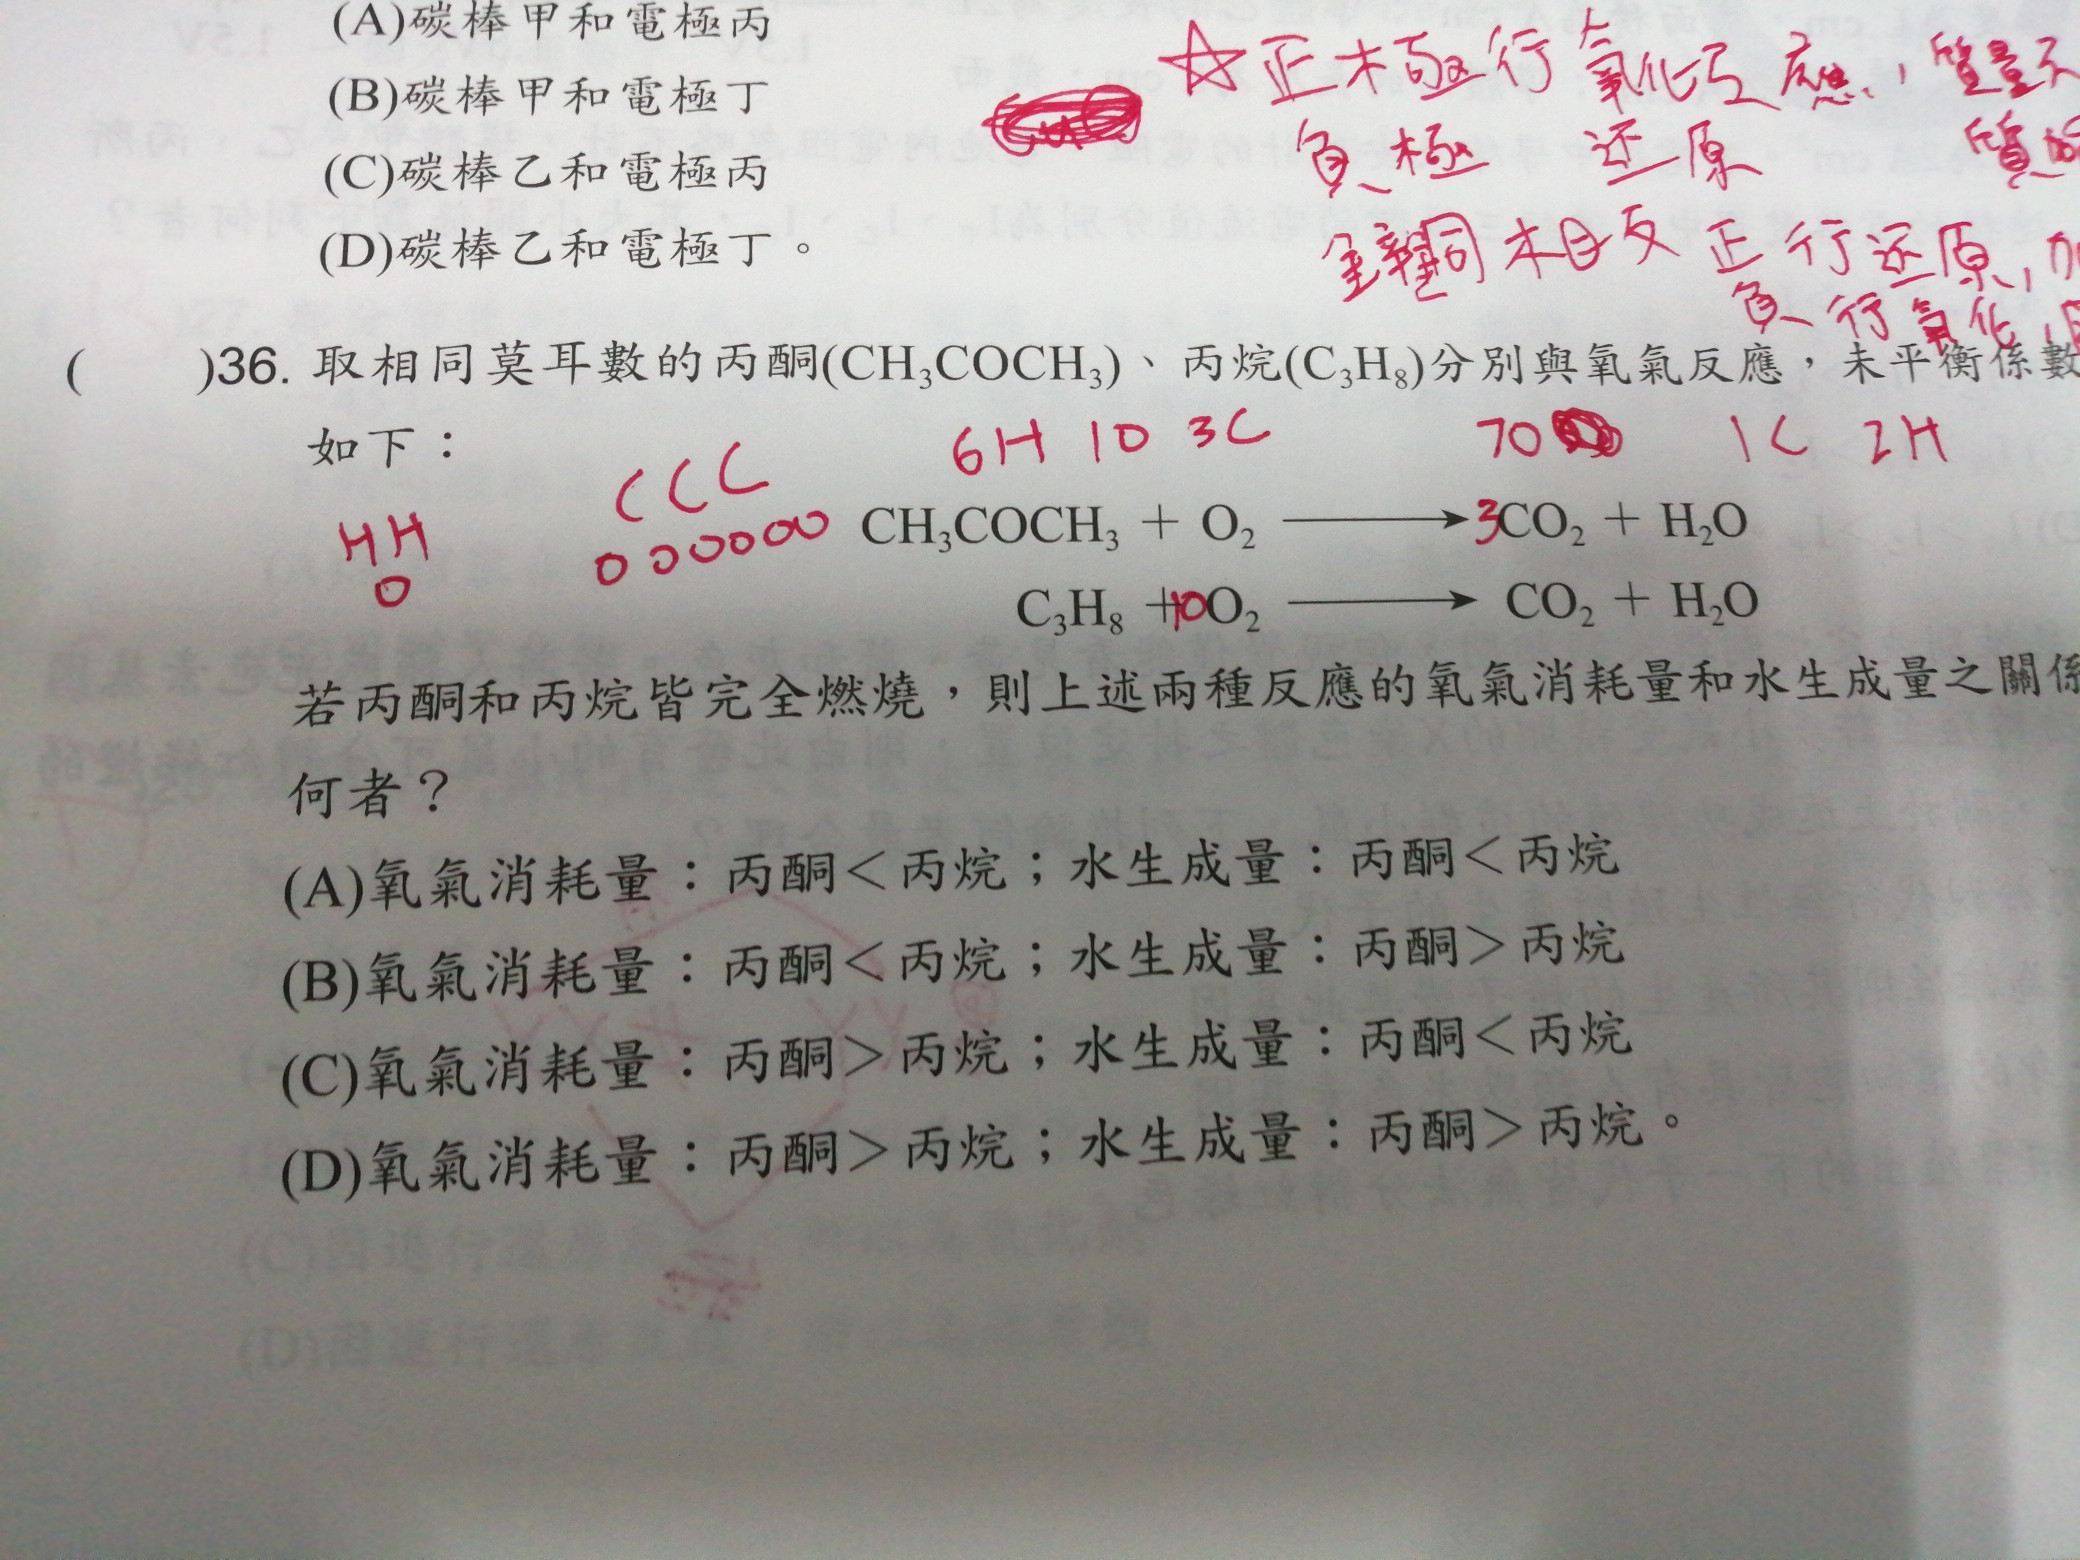 (A)碳棒甲和電極丙
(B)碳棒甲和電極丁
(C)碳棒乙和電極丙
(D)碳棒乙和電極丁。
☆正極行氧化反應,質量不
負極 还原 質
鋅銅相反 正行还原,加
負行氧化,
( )36. 取相同莫耳數的丙酮(CH₃COCH₃)、丙烷(C₃H₈)分別與氧氣反應,未平衡係數
如下:
6H 1O 3C 7O 1C 2H
CCC
HH
O
OOOOOO
CH₃COCH₃ + O₂ ⟶ 3CO₂ + H₂O
C₃H₈ + 10O₂ ⟶ CO₂ + H₂O
若丙酮和丙烷皆完全燃燒,則上述兩種反應的氧氣消耗量和水生成量之關係
何者?
(A)氧氣消耗量:丙酮<丙烷;水生成量:丙酮<丙烷
(B)氧氣消耗量:丙酮<丙烷;水生成量:丙酮>丙烷
(C)氧氣消耗量:丙酮>丙烷;水生成量:丙酮<丙烷
(D)氧氣消耗量:丙酮>丙烷;水生成量:丙酮>丙烷。